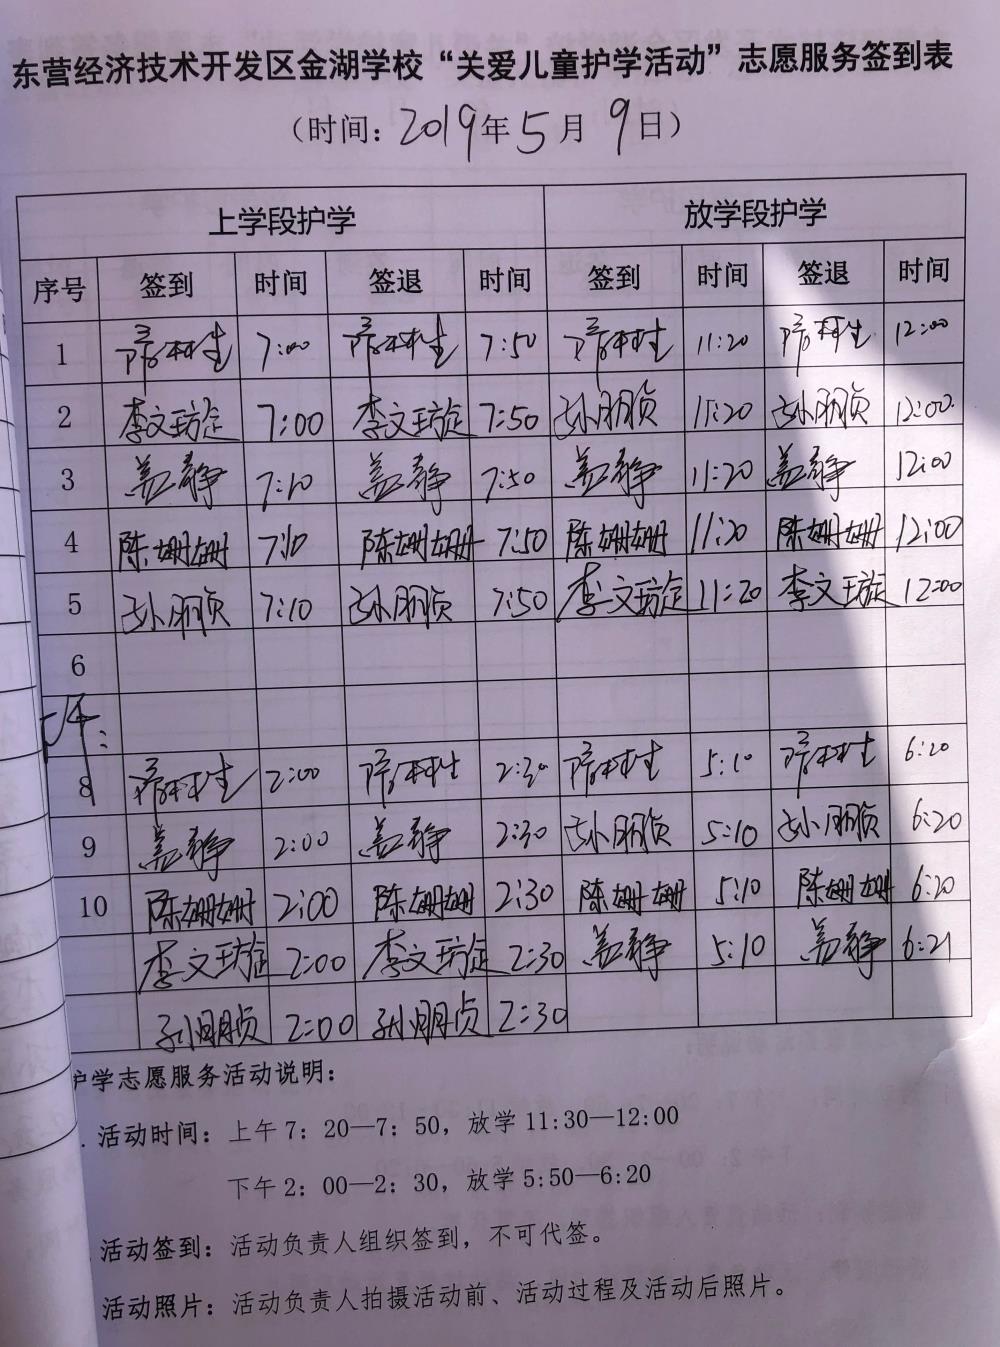 东营经济技术开发区金湖学校“关爱儿童护学活动”志愿服务签到表
（时间：2019年5月9日）
上学段护学 放学段护学
序号 签到 时间 签退 时间 签到 时间 签退 时间
1 7:00 7:50 11:20 12:00
2 李文 7:00 李文 7:50 孙朋贞 11:20 孙朋贞 12:00
3 盖静 7:10 盖静 7:50 盖静 11:20 盖静 12:00
4 陈姗姗 7:10 陈姗姗 7:50 陈姗姗 11:20 陈姗姗 12:00
5 孙朋贞 7:10 孙朋贞 7:50 李文 11:20 李文 12:00
6
下午：
8 2:00 2:30 5:10 6:20
9 盖静 2:00 盖静 2:30 孙朋贞 5:10 孙朋贞 6:20
10 陈姗姗 2:00 陈姗姗 2:30 陈姗姗 5:10 陈姗姗 6:20
李文 2:00 李文 2:30 盖静 5:10 盖静 6:21
孙朋贞 2:00 孙朋贞 2:30
护学志愿服务活动说明：
. 活动时间：上午7：20—7：50，放学11:30—12:00
下午2：00—2：30，放学5:50—6:20
活动签到：活动负责人组织签到，不可代签。
活动照片：活动负责人拍摄活动前、活动过程及活动后照片。